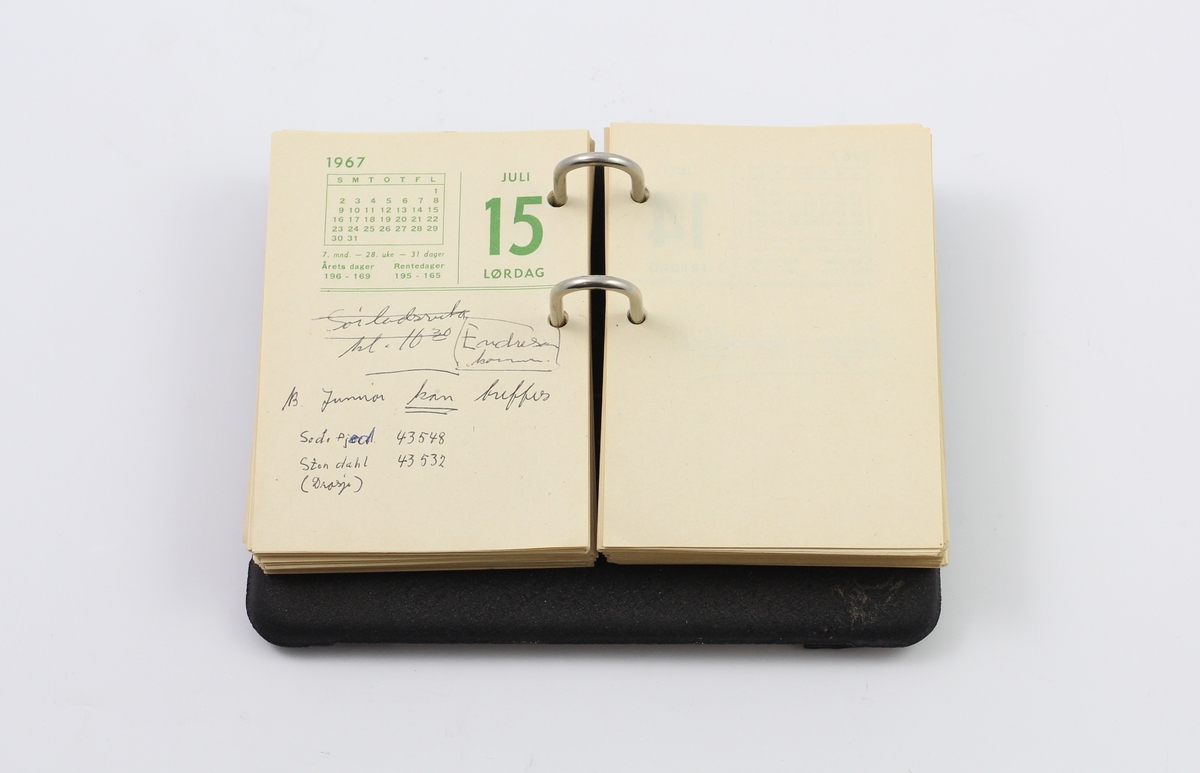 1967
S M T O T F L
1
2 3 4 5 6 7 8
9 10 11 12 13 14 15
16 17 18 19 20 21 22
23 24 25 26 27 28 29
30 31
7. mnd. — 28. uke — 31 dager
Årets dager Rentedager
196 - 169 195 - 165
JULI
15
LØRDAG
kl. 16 30
Endresen
B. Junior kan buffes
43548
Stendahl 43532
(Drosje)
14